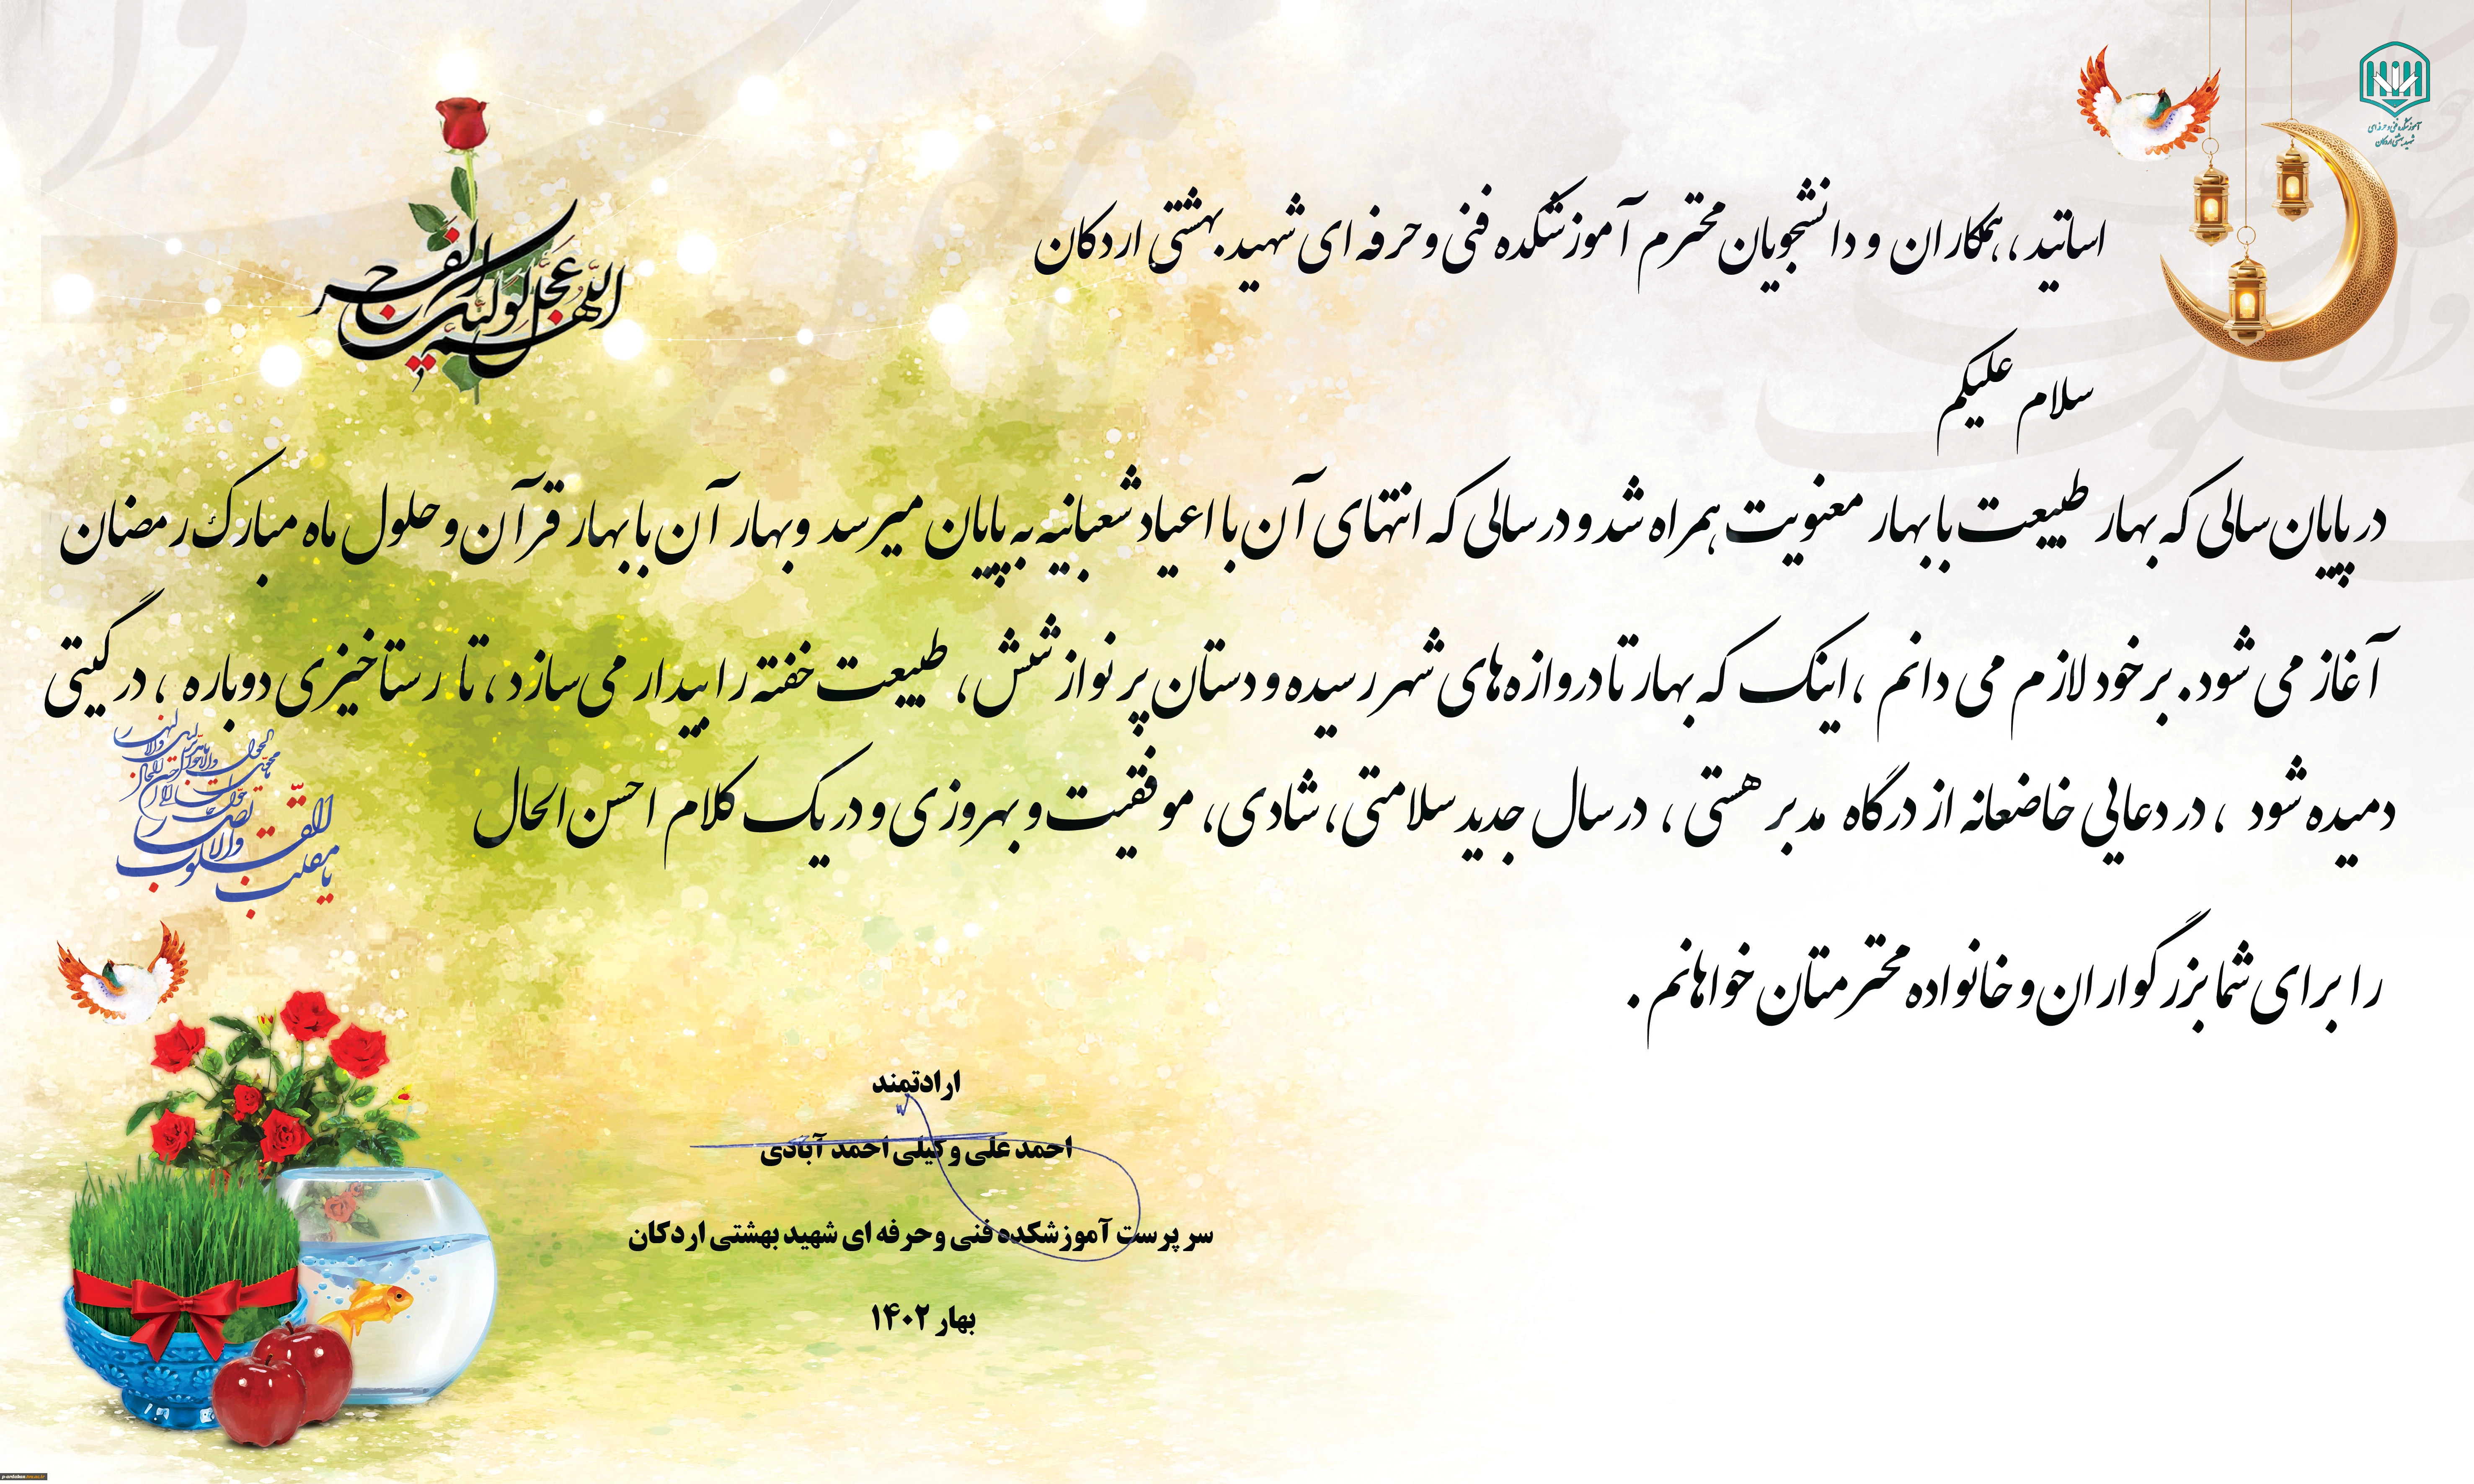 آموزشکده فنی و حرفه ای
شهید بهشتی اردکان
اللهم عجل لولیک الفرج
اساتید ، همکاران و دانشجویان محترم آموزشکده فنی و حرفه ای شهید بهشتی اردکان
سلام علیکم
در پایان سالی که بهار طبیعت با بهار معنویت همراه شد و در سالی که انتهای آن با اعیاد شعبانیه به پایان میرسد و بهار آن با بهار قرآن و حلول ماه مبارک رمضان
آغاز می شود. بر خود لازم می دانم ، اینک که بهار تا دروازه های شهر رسیده و دستان پر نوازشش، طبیعت خفته را بیدار می سازد ، تا رستاخیزی دوباره ، در گیتی
دمیده شود ، در دعایی خاضعانه از درگاه مدبر هستی ، در سال جدید سلامتی، شادی، موفقیت و بهروزی و در یک کلام احسن الحال
را برای شما بزرگواران و خانواده محترمتان خواهانم .
یا مقلب القلوب
والابصار
ارادتمند
احمد علی وکیلی احمد آبادی
سرپرست آموزشکده فنی وحرفه ای شهید بهشتی اردکان
بهار ۱۴۰۲